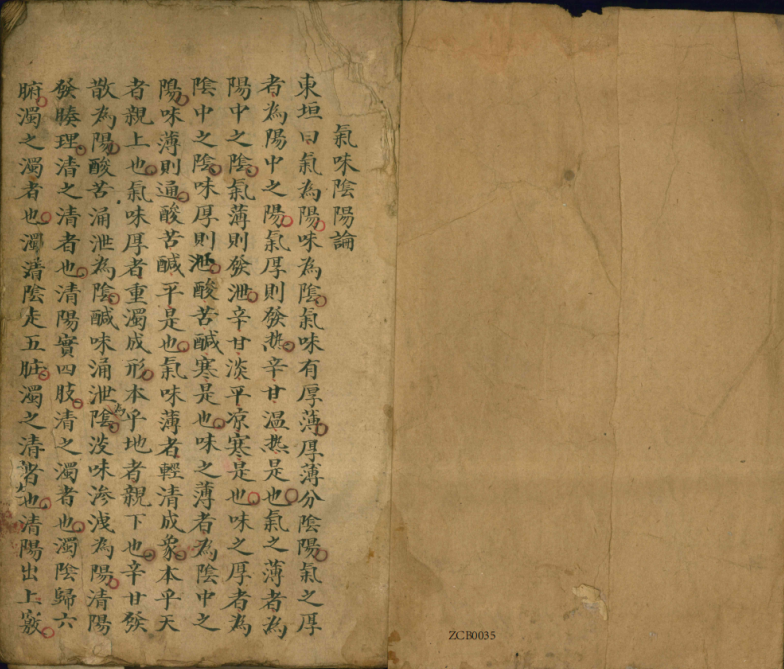 氣味陰陽論
東垣曰氣為陽味為陰氣味有厚薄厚薄分陰陽氣之厚
者為陽中之陽氣厚則發热辛甘溫热是也氣之薄者為
陽中之陰氣薄則發泄辛甘淡平凉寒是也味之厚者為
陰中之陰味厚則泄酸苦醎寒是也味之薄者為陰中之
陽味薄則通酸苦醎平是也氣味薄者輕清成象本乎天
者親上也氣味厚者重濁成形本乎地者親下也辛甘發
散為陽酸苦涌泄為陰醎味涌泄為陰淡味渗洩為陽清陽
發腠理清之清者也清陽實四肢清之濁者也濁陰歸六
腑濁之濁者也濁清陰走五脏濁之清者也清陽出上竅
ZCB0035